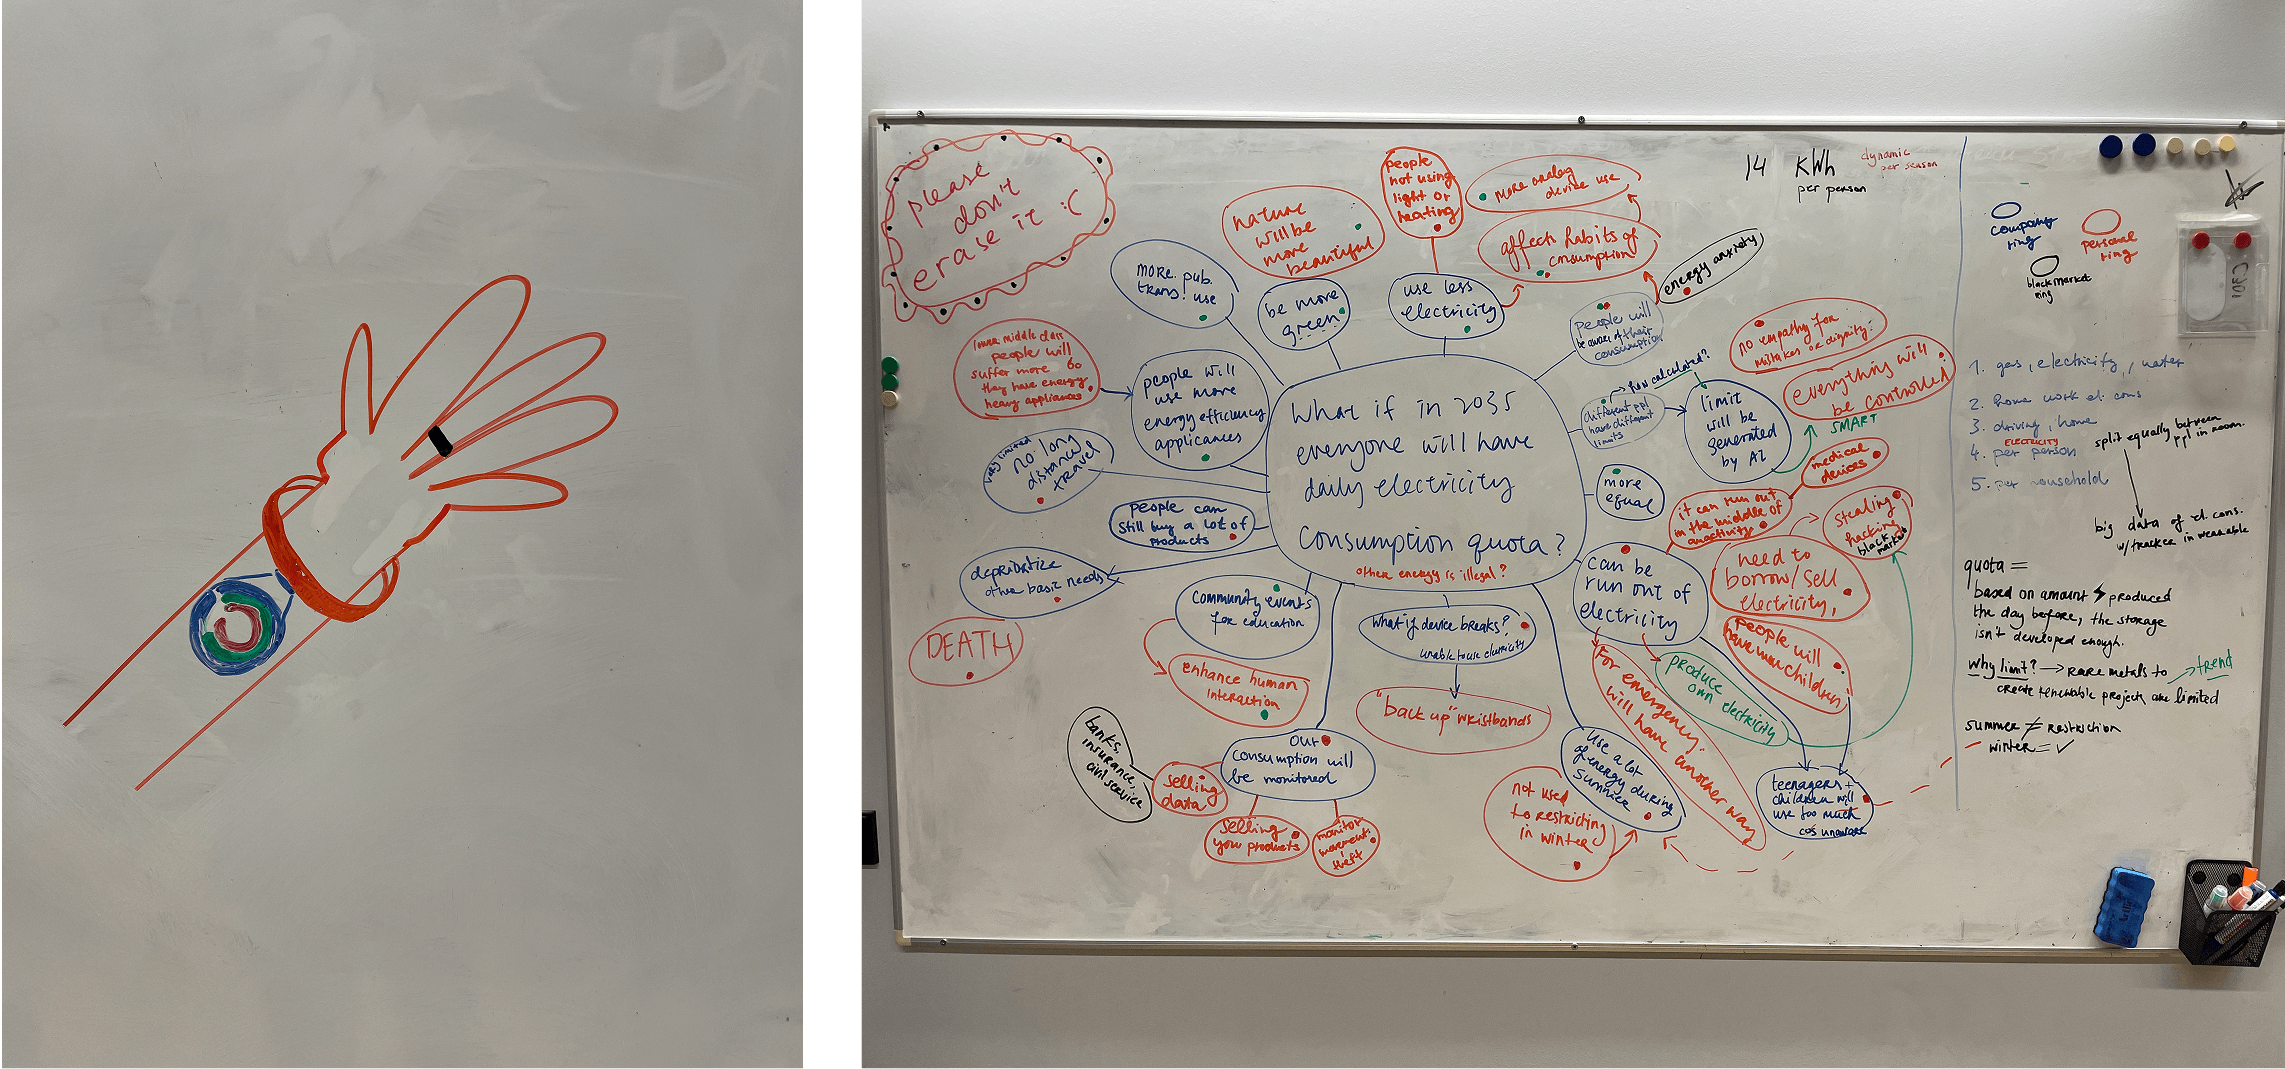 please
don't
erase it :(
nature
will be
more
beautiful
people
not using
light or
heating
more analog
device use
affects habits of
consumption
energy anxiety
14 KWh
per person
dynamic
per season
more pub.
trans. use
be more
green
use less
electricity
people will
be aware of their
consumption
lower middle class
people will
suffer more bc
they have energy
heavy appliances
people will
use more
energy efficiency
applicances
very limited
no long
distance
travel
people can
still buy a lot of
products
deprioritize
other basic needs
DEATH
What if in 2035
everyone will have
daily electricity
consumption quota?
other energy is illegal?
how calculated?
different ppl
have different
limits
limit
will be
generated
by AI
no empathy for
mistakes or dignity.
everything will
be controlled
SMART
more
equal
medical
devices
it can run out
in the middle of
an activity
stealing
hacking
black market
can be
run out of
electricity
need to
borrow/sell
electricity,
people will
have more children
produce
own electricity
for emergency:
will have another way
community events
for education
enhance human
interaction
what if device breaks?
unable to use electricity
"back up" wristbands
our
consumption will
be monitored
banks,
insurance,
civil service
selling
data
selling
you products
monitor
movement:
theft
use a lot
of energy during
summer
not used
to restricting
in winter
teenagers +
children will
use too much
cos unaware
company
ring
personal
ring
black market
ring
1. gas, electricity, water
2. home work el. cons
3. driving, home
ELECTRICITY
4. per person
5. per household
split equally between
ppl in room.
big data of el. cons.
w/tracker in wearable
quota =
based on amount produced
the day before, the storage
isn't developed enough.
why limit? → rare metals to → trend
create renewable projects are limited
summer ≠ restriction
winter = ✓